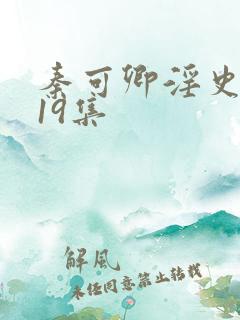 秦可卿淫史
19集
解風
未经同意禁止转载